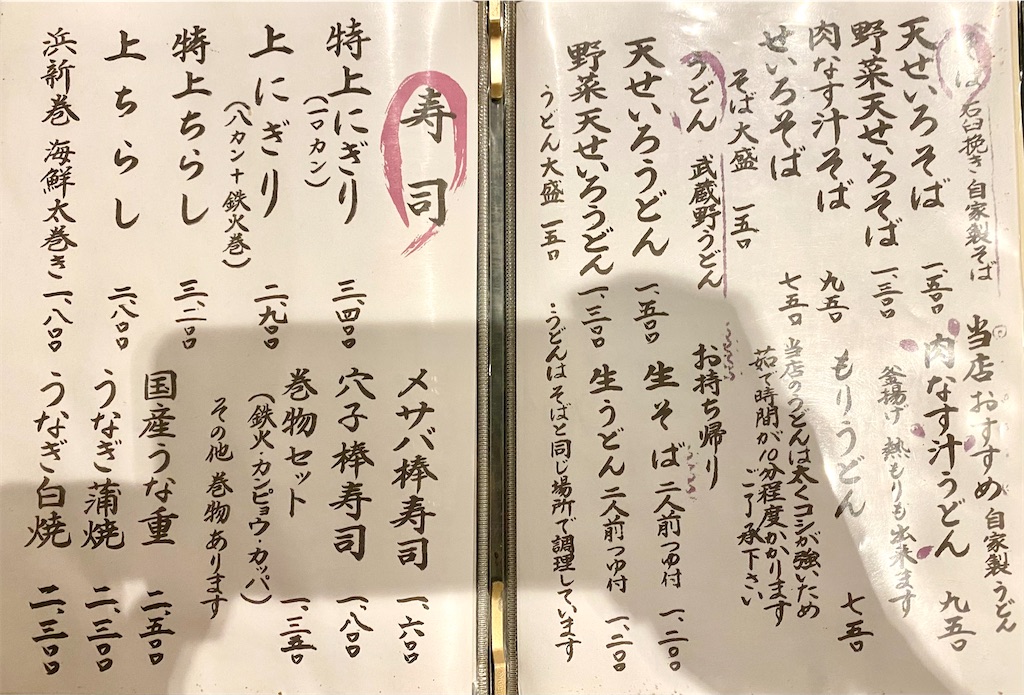 そば 石臼挽き自家製そば
天せいろそば 一、五〇〇
野菜天せいろそば 一、三〇〇
肉なす汁そば 九五〇
せいろそば 七五〇
そば大盛 一五〇
うどん 武蔵野うどん
天せいろうどん 一、五〇〇
野菜天せいろうどん 一、三〇〇
うどん大盛 一五〇
当店おすすめ 自家製うどん
肉なす汁うどん 九五〇
釜揚げ 熱もりも出来ます
もりうどん 七五〇
当店のうどんは太くコシが強いため
茹で時間が10分程度かかります
ご了承下さい
お持ち帰り
生そば 二人前つゆ付 一、二〇〇
生うどん 二人前つゆ付 一、二〇〇
・うどんはそばと同じ場所で調理しています
寿司
特上にぎり 三、四〇〇
(一〇カン)
上にぎり 二、九〇〇
(八カン+鉄火巻)
特上ちらし 三、二〇〇
上ちらし 二、八〇〇
浜新巻 海鮮太巻き 一、八〇〇
メサバ棒寿司 一、六〇〇
穴子棒寿司 一、八〇〇
巻物セット 一、三五〇
(鉄火・カンピョウ・カッパ)
その他 巻物あります
国産うな重 二、五〇〇
うなぎ蒲焼 二、三〇〇
うなぎ白焼 二、三〇〇